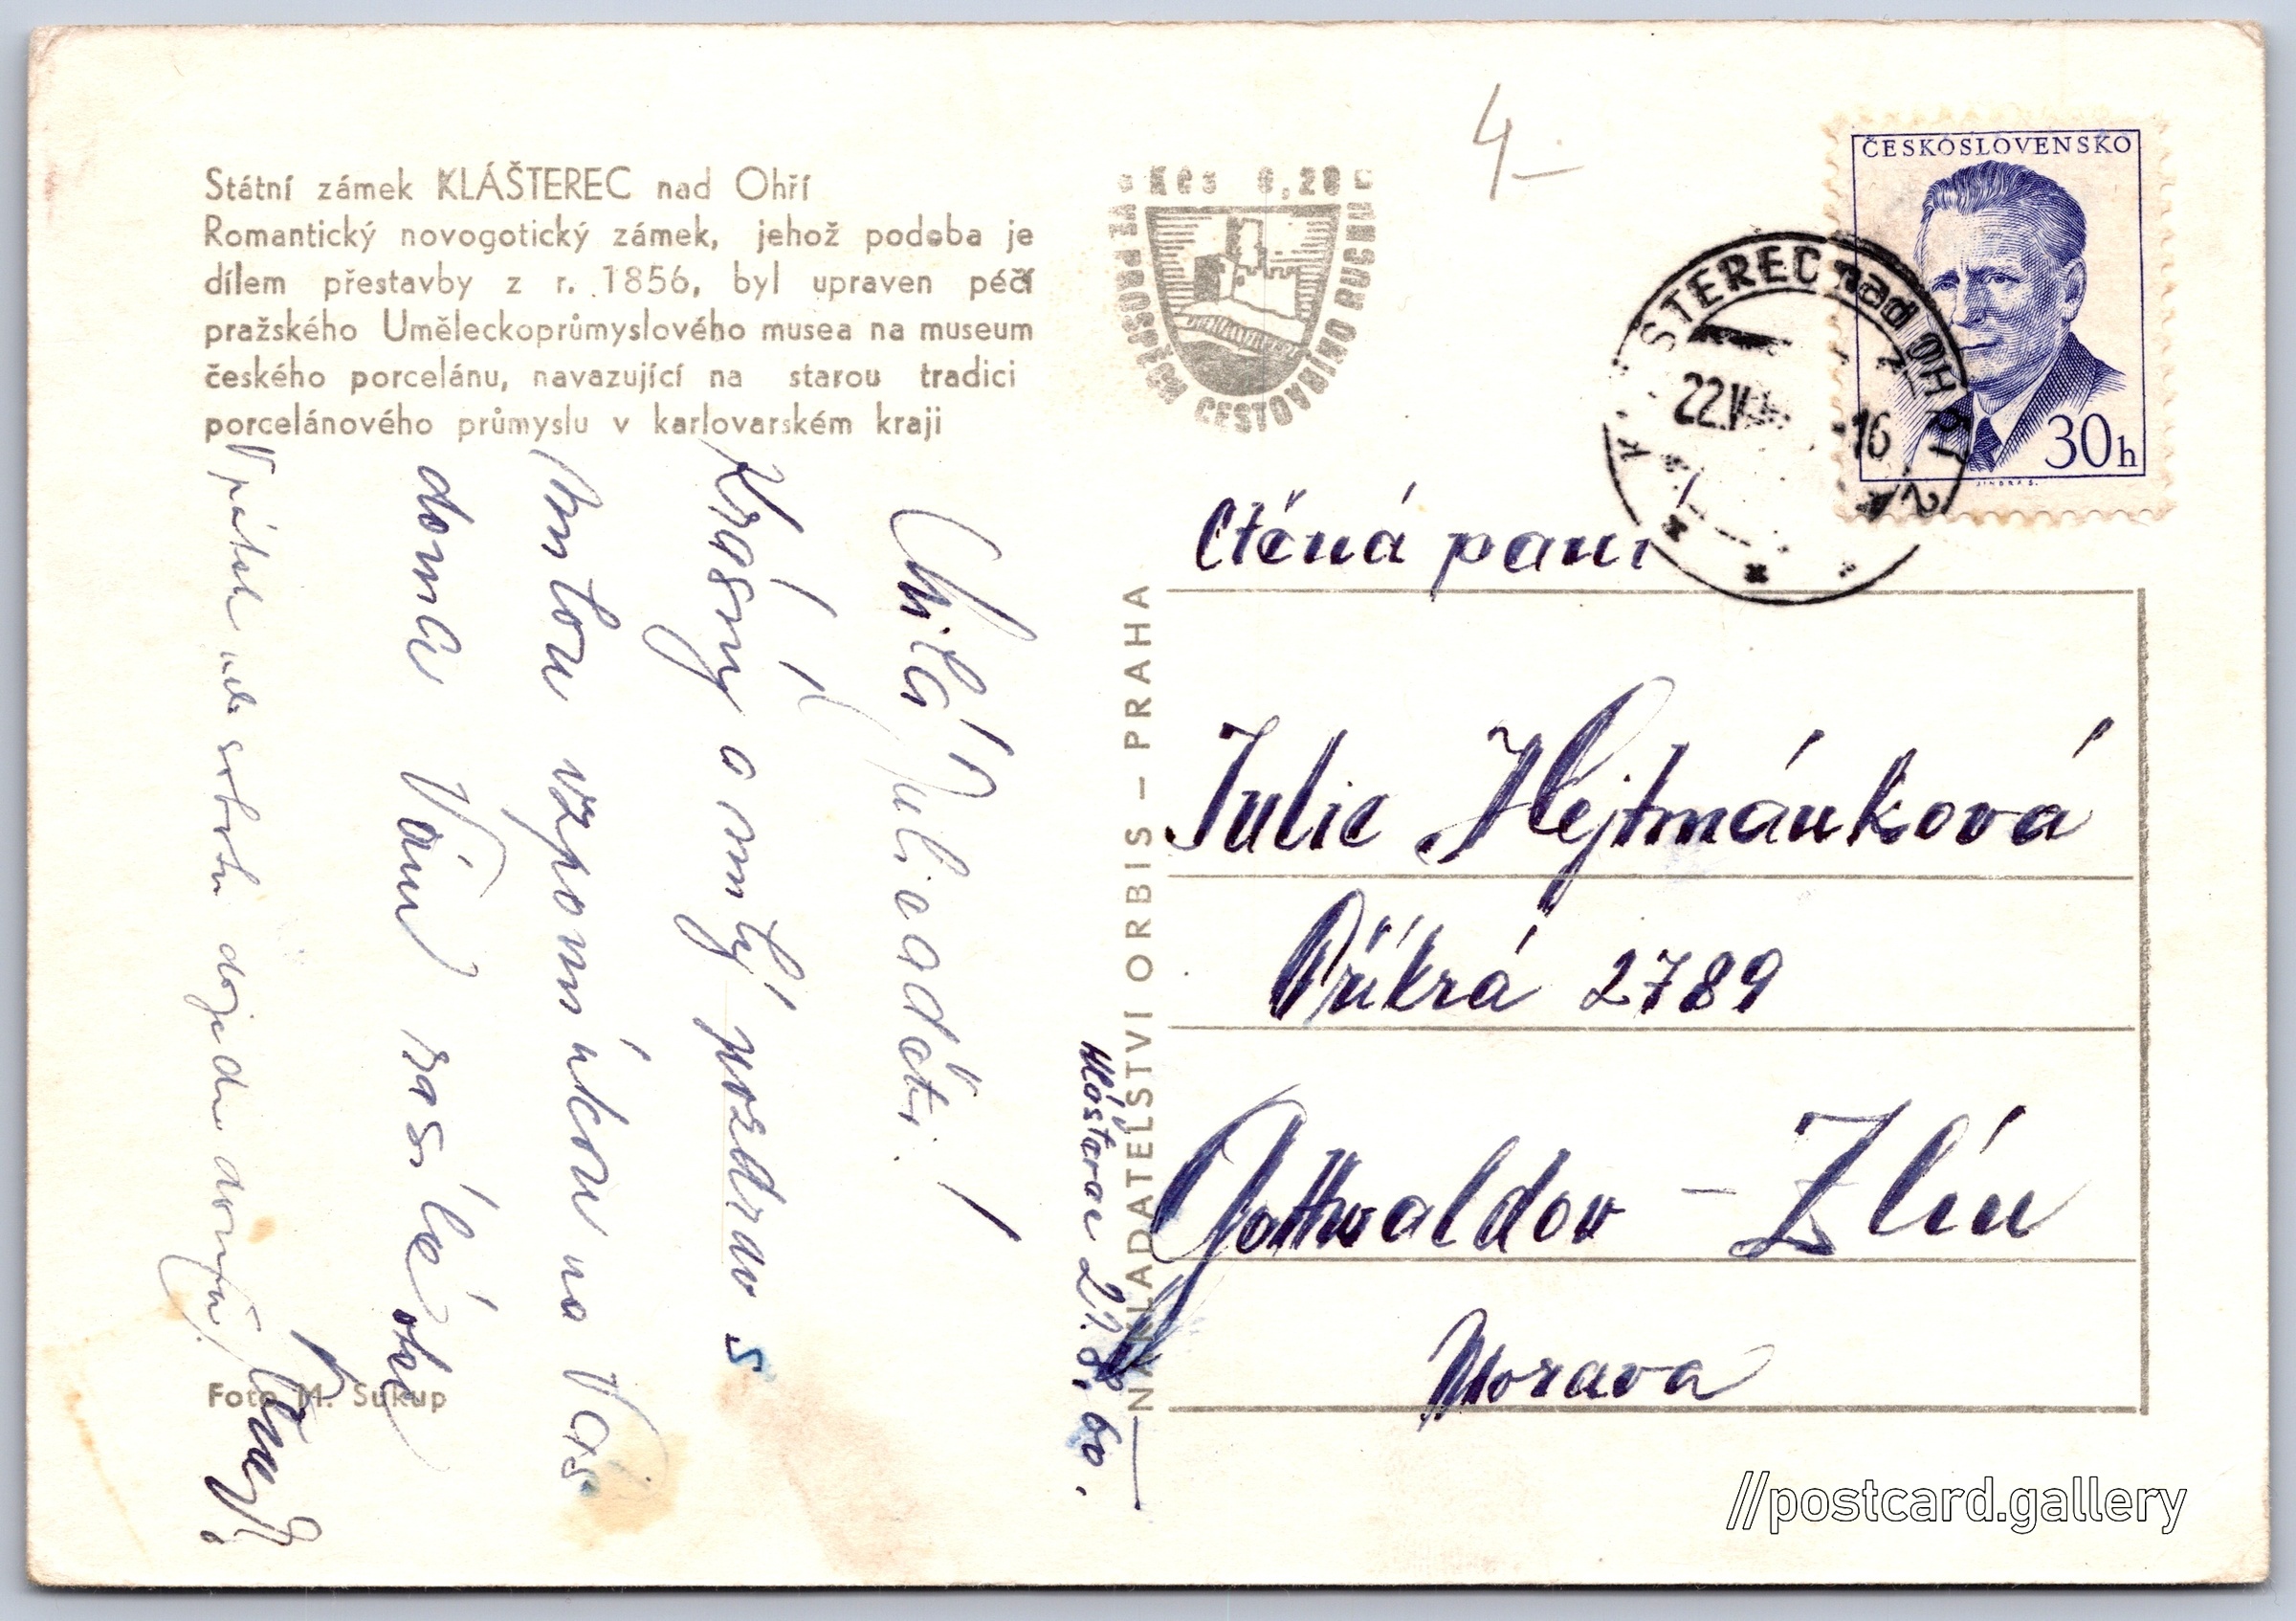 Státní zámek KLÁŠTEREC nad Ohří
Romantický novogotický zámek, jehož podoba je
dílem přestavby z r. 1856, byl upraven péčí
pražského Uměleckoprůmyslového musea na museum
českého porcelánu, navazující na starou tradici
porcelánového průmyslu v karlovarském kraji
Kčs 0,20
CESTOVNÍHO RUCHU
4.-
ČESKOSLOVENSKO
30h
STEREC nad OHŘÍ 2
22.V
-16
Klášterec 21.8.60.
Milá
Krásný a milý pozdrav s
vzpomínkou na Vás
doma Vám
V pátek dojedu domů.
Foto M. Sukup
NAKLADATELSTVÍ ORBIS – PRAHA
Ctěná paní
Julie Hejtmánková
Příkrá 2789
Gottwaldov – Zlín
Morava
//postcard.gallery